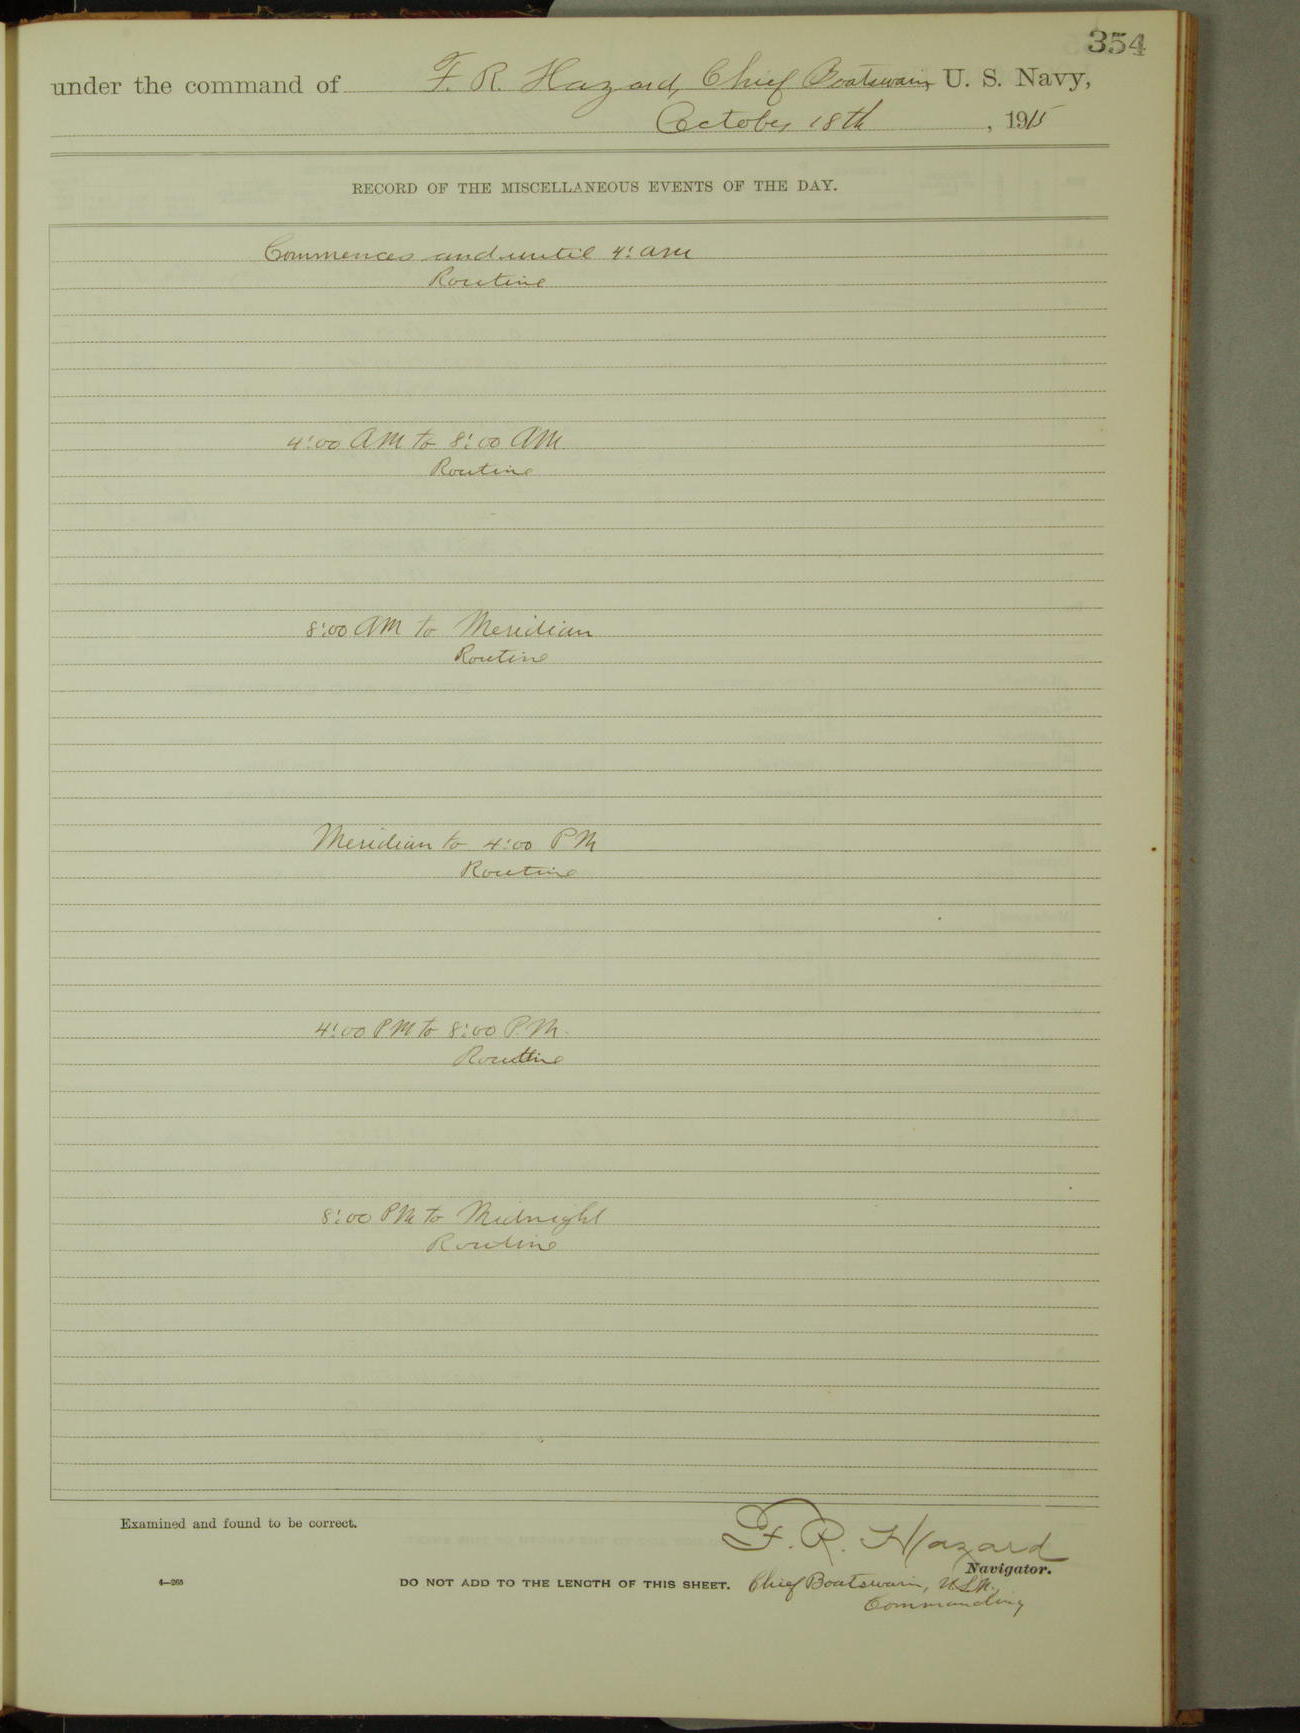 354
under the command of F. R. Hazard, Chief Boatswain, U. S. Navy,
October 18th, 1915
RECORD OF THE MISCELLANEOUS EVENTS OF THE DAY.
Commences and until 4: am
Routine
4:00 AM to 8:00 AM
Routine
8:00 AM to Meridian
Routine
Meridian to 4:00 PM
Routine
4:00 PM to 8:00 P.M.
Routine
8:00 PM to Midnight
Routine
Examined and found to be correct.
F. R. Hazard
Navigator.
4—265 DO NOT ADD TO THE LENGTH OF THIS SHEET. Chief Boatswain, U.S.N.
Commanding